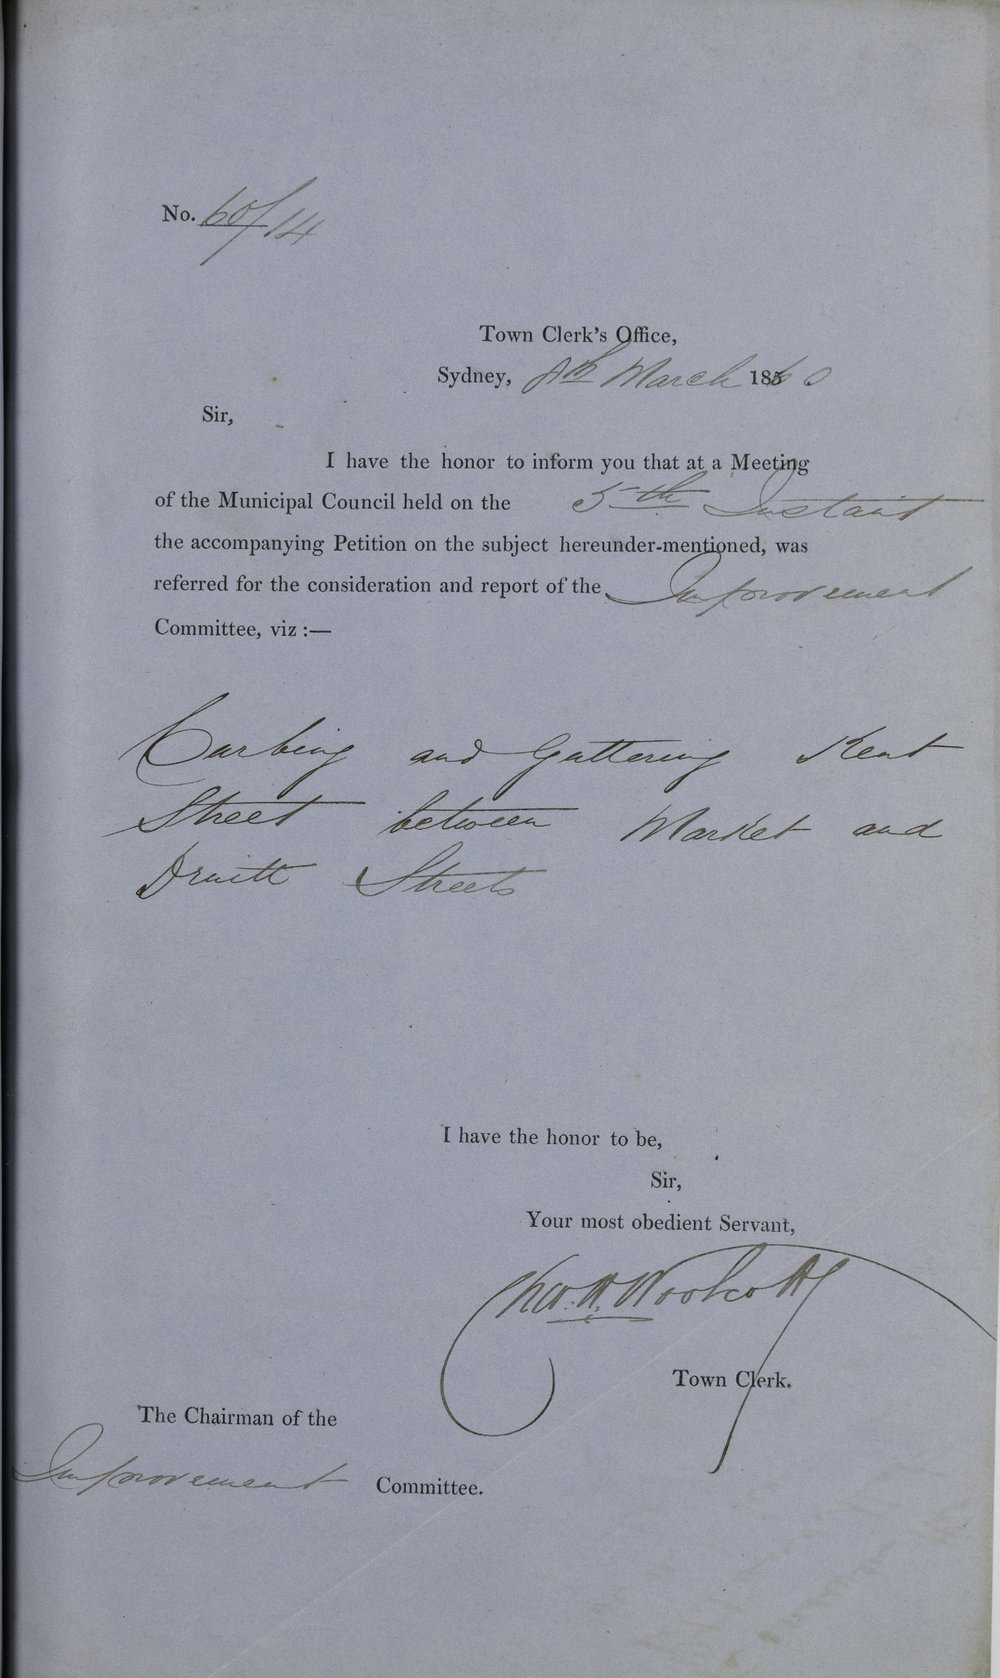 No. 60/14
Town Clerk's Office,
Sydney, 8th March 1860
Sir,
I have the honor to inform you that at a Meeting
of the Municipal Council held on the 5th Instant
the accompanying Petition on the subject hereunder-mentioned, was
referred for the consideration and report of the Improvement
Committee, viz :—
Curbing and Guttering Kent
Street between Market and
Druitt Streets
I have the honor to be,
Sir,
Your most obedient Servant,
Chas. H. Woolcott
Town Clerk.
The Chairman of the
Improvement Committee.